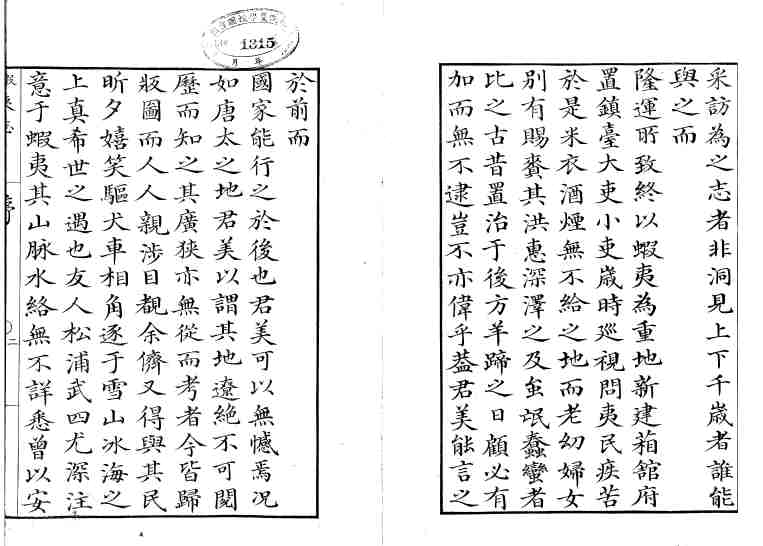 采訪為之志者非洞見上下千歲者誰能
與之而
隆運所致終以蝦夷為重地新建箱館府
置鎮臺大吏小吏歲時巡視問夷民疾苦
於是米衣酒煙無不給之地而老幼婦女
別有賜賚其洪惠深澤之及蚩氓蠢蠻者
比之古昔置治于後方羊蹄之日顧必有
加而無不逮豈不亦偉乎葢君美能言之
於前而
國家能行之於後也君美可以無憾焉況
如唐太之地君美以謂其地遼絕不可閱
歷而知之其廣狹亦無從而考者今皆歸
版圖而人人親涉目覩余儕又得與其民
昕夕嬉笑驅犬車相角逐于雪山冰海之
上真希世之遇也友人松浦武四尤深注
意于蝦夷其山脉水絡無不詳悉曾以安
序
〇二
1315